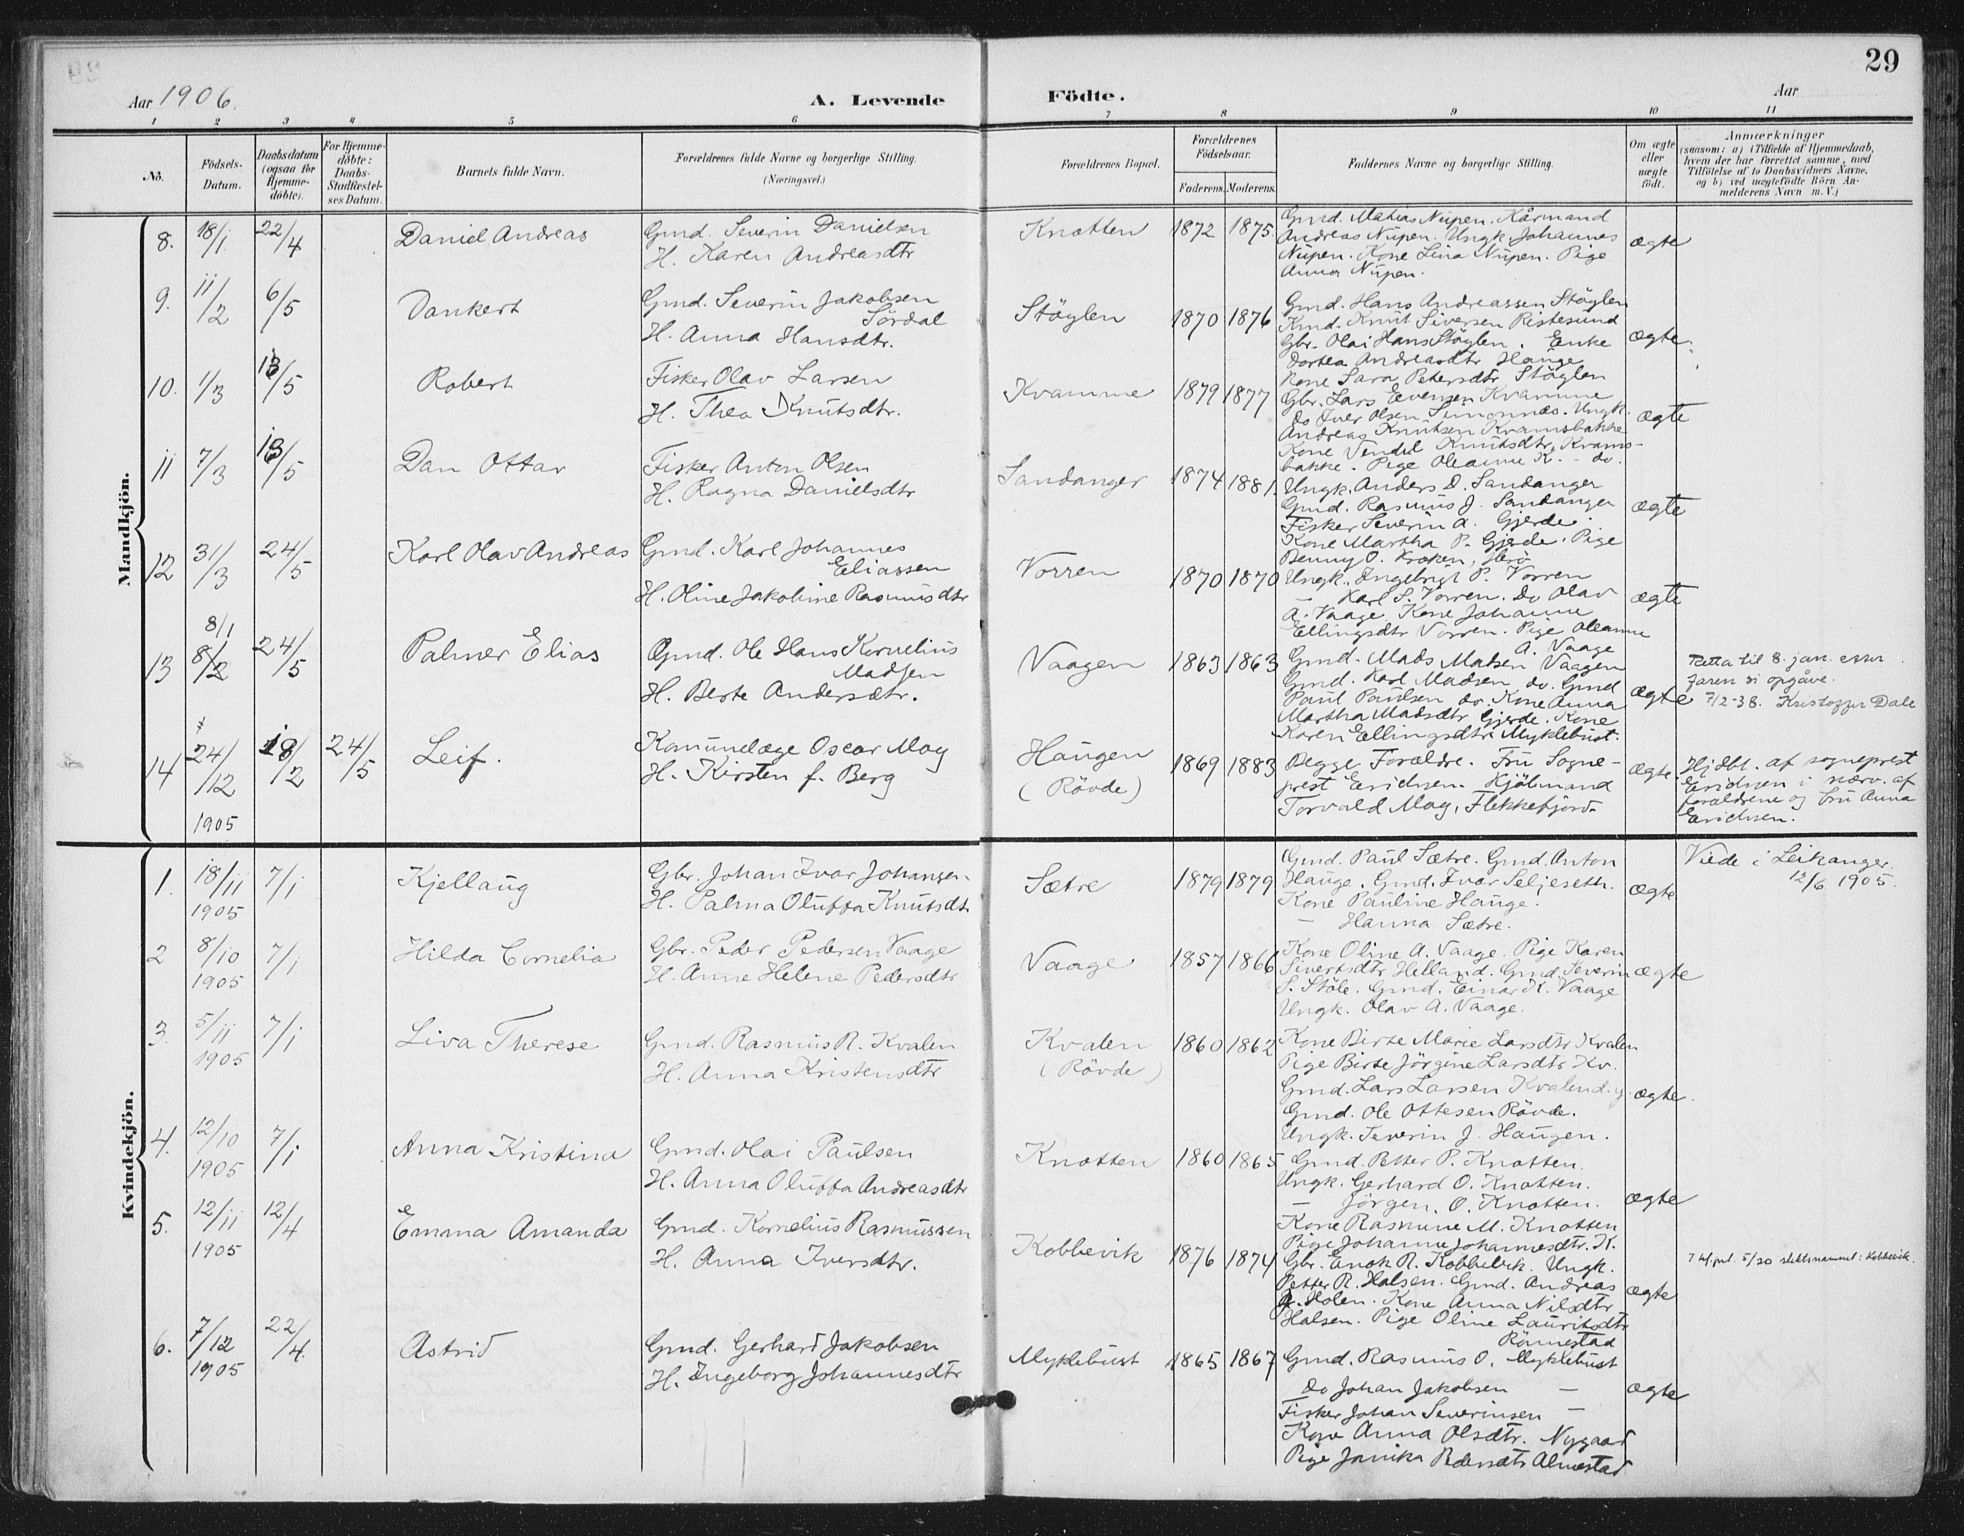 29
Aar 1906.
A. Levende Födte.
Aar
1 2 3 4 5 6 7 8 9 10 11
No.
Födsels-Datum.
Daabsdatum (ogsaa for Hjemme-döbte).
For Hjemme-döbte: Daabs-Stadfæstel-ses Datum.
Barnets fulde Navn.
Forældrenes fulde Navne og borgerlige Stilling. (Næringsvei.)
Forældrenes Bopæl.
Forældrenes Födselsaar.
Faderens. Moderens.
Faddernes Navne og borgerlige Stilling.
Om ægte eller uægte födt.
Anmærkninger
(saasom: a) i Tilfælde af Hjemmedaab, hvem der har forrettet samme, med Tilföielse af to Daabsvidners Navne, og b) ved uægtefödte Börn An-melderens Navn m. V.)
Mandkjön.
8. 18/1 22/4 Daniel Andreas
Gmd. Severin Danielsen
H. Karen Andreasdtr
Knotten 1872 1875
Gmd. Matias Nupen. Kårmand
Andreas Nupen. Ungk. Johannes
Nupen. Kone Lina Nupen. Pige
Anna Nupen.
ægte
9. 11/2 6/5 Dankert
Gmd. Severin Jakobsen
Sördal
H. Anna Hansdtr.
Stöylen 1870 1876
Gmd. Hans Andreassen Stöylen
Kmd. Knut Siversen Ristesund
Gbr. Olai Hans Stöylen. Enke
Dortea Andreasdtr Hauge
Kone Sara Petersdtr Stöylen
ægte.
10. 1/3 13/5 Robert
Fisker Olav Larsen
H. Thea Knutsdtr.
Kvamme 1879 1877
Gbr. Lars Evensen Kvamme
Do Iver Olsen Simonnes. Ungk.
Andreas Knutsen Kvamsbakke
Kone Vendel Knutsdtr, Kvams-
bakke. Pige Oleanne K. - do.
ægte
11 7/3 13/5 Dan Ottar
Fisker Anton Olsen
H. Ragna Danielsdtr
Sandanger 1874 1881.
Ungk. Anders D. Sandanger
Gmd. Rasmus J. Sandanger
Fisker Severin A. Gjerde.
Kone Martha P. Gjerde. Pige
Benny O. Kroken, Herö
ægte
12 31/3 24/5 Karl Olav Andreas
Gmd. Karl Johannes
Eliassen
H. Oline Jakobine Rasmusdtr
Vorren 1870 1870
Ungk. Ingebrigt P. Vorren
— Karl S. Vorren. Do Olav
A. Vaage Kone Johanne
Ellingsdtr Vorren. Pige Oleanne
A. Vaage
ægte
8/1
13 8/2 24/5 Palmer Elias
Gmd. Ole Hans Kornelius
Madsen
H. Berte Andersdtr.
Vaagen 1863 1863
Gmd. Mads Matsen Vaagen
Gmd. Karl Madsen do. Gmd
Paul Paulsen do. Kone Anna
Martha Madsdtr Gjerde. Kone
Karen Ellingsdtr Myklebust.
ægte
Retta til 8. jan. etter
faren si opgåve.
7/2-38. Kristoffer Dale
14 24/12 1905 18/2 24/5 Leif.
Komunelæge Oscar Moy
H. Kirsten f. Berg
Haugen
(Rövde)
1869 1883
Begge Forældre. Fru Sogne-
prest Erichsen. Kjöbmand
Torvald Moy, Flekkefjord.
ægte.
Hjdbt. af sogneprest
Erichsen i nærv. af
forældrene og fru Anna
Erichsen.
Kvindekjön.
1. 18/11 1905 7/1 Kjellaug
Gbr. Johan Ivar Johansen
H. Palma Oluffa Knutsdtr.
Sætre 1879 1879
Gmd. Paul Sætre. Gmd. Anton
Hauge. Gmd. Ivar Seljeseth.
Kone Pauline Hauge.
— Hanna Sætre.
ægte
Viede i Leikanger
12/6 1905.
2 8/10 1905 7/1 Hilda Cornelia
Gbr. Peder Pedersen Vaage
H. Anne Helene Pedersdtr
Vaage 1857 1866
Kone Oline A. Vaage. Pige Karen
Sivertsdtr Helland. Gmd. Severin
S. Stöle. Gmd. Einar K. Vaage
Ungk. Olav A. Vaage.
ægte
3. 5/11 1905 7/1 Liva Therese
Gmd. Rasmus R. Kvalen
H. Anna Kristensdtr
Kvalen
(Rövde)
1860 1862
Kone Birte Marie Larsdtr Kvalen
Pige Birte Jörgine Larsdtr Kv.
Gmd. Lars Larsen Kvalen d. y.
Gmd. Ole Ottesen Rövde.
Ungk. Severin J. Haugen.
ægte.
4. 12/10 1905 7/1 Anna Kristina
Gmd. Olai Paulsen
H. Anna Oluffa Andreasdtr
Knotten 1860 1865
Gmd. Petter P. Knotten.
Ungk. Gerhard O. Knotten.
— Jörgen. O. Knotten.
Kone Rasmine M. Knotten
Pige Johanne Johannesdtr. K.
ægte
5. 12/11 1905 12/4 Emma Amanda
Gmd. Kornelius Rasmussen
H. Anna Iversdtr.
Kobbevik 1876 1874
Gbr. Enok R. Kobbevik. Ungk.
Petter R. Halsen. Gmd. Andreas
A. Holen. Kone Anna Nilsdtr
Halsen. Pige Oline Lauritsdtr
Rönnestad
ægte
5/20 slektsnamnet: Kobbevik.
6. 7/12 1905 22/4. Astrid
Gmd. Gerhard Jakobsen
H. Ingeborg Johannesdtr
Myklebust 1865 1867
Gmd. Rasmus O. Myklebust
Do Johan Jakobsen —
Fisker Johan Severinsen —
Kone Anna Olsdtr. Nygaard
Pige Janika Pedersdtr Almestad
ægte